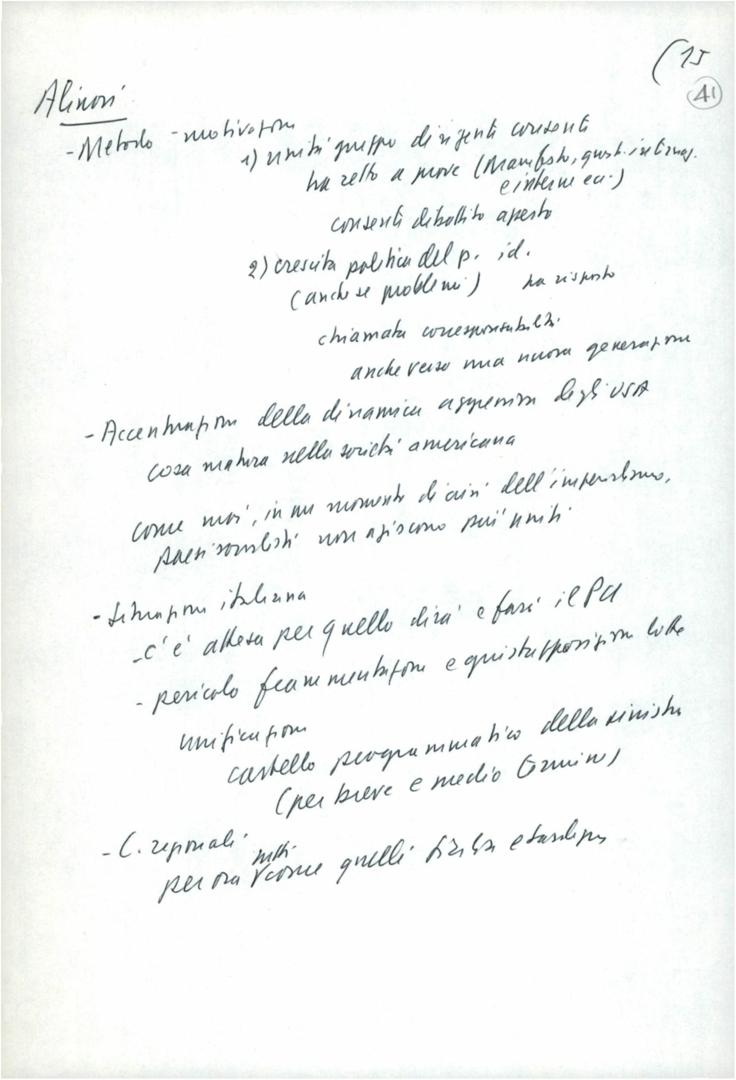 (15
41
Alinovi
- Metodo - motivazione
1) unità gruppo dirigente consente
ha retto a prove (Manifesto, quest. internaz.
e interne ecc.)
consente dibattito aperto
2) crescita politica del p. id.
(anche se problemi) ha risposto
chiamata corresponsabilità
anche verso una nuova generazione
- Accentuazione della dinamica aggressiva degli USA
cosa matura nella società americana
come mai, in un momento di crisi dell'imperialismo,
paesi socialisti non agiscono più uniti
- Situazione italiana
- c'è attesa per quello dirà e farà il PCI
- pericolo frammentazione e giustapposizione lotte
unificazione
cartello programmatico della sinistra
(per breve e medio termine)
- C. regionali
tutti
per ora come quelli Sicilia e Sardegna